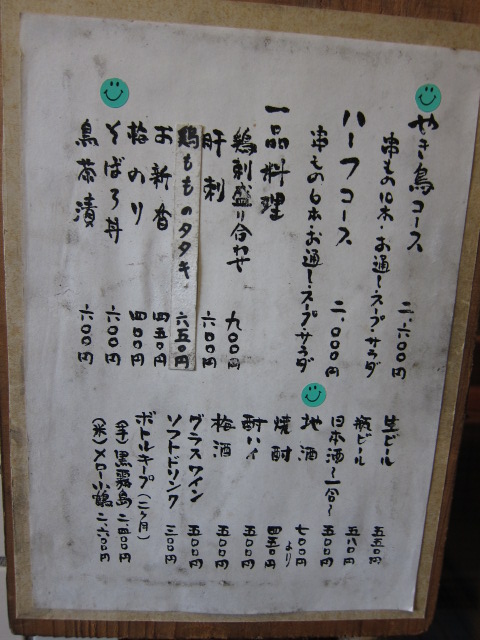 やき鳥コース 二.六〇〇円
串もの10本・お通し・スープ・サラダ
ハーフコース 二.〇〇〇円
串もの6本・お通し・スープ・サラダ
一品料理
鶏刺盛り合わせ 九〇〇円
肝刺 六〇〇円
鶏もものタタキ 六五〇円
お新香 四五〇円
梅のり 四〇〇円
そぼろ丼 六〇〇円
鳥茶漬 六〇〇円
生ビール 五五〇円
瓶ビール 五八〇円
日本酒〜一合〜 五〇〇円
地酒 七〇〇円より
焼酎 四五〇円
酎ハイ 五〇〇円
梅酒 五〇〇円
グラスワイン 五〇〇円
ソフトドリンク 三〇〇円
ボトルキープ(二ヶ月)
(芋)黒霧島 二.四〇〇円
(米)メロー小鶴 二.六〇〇円